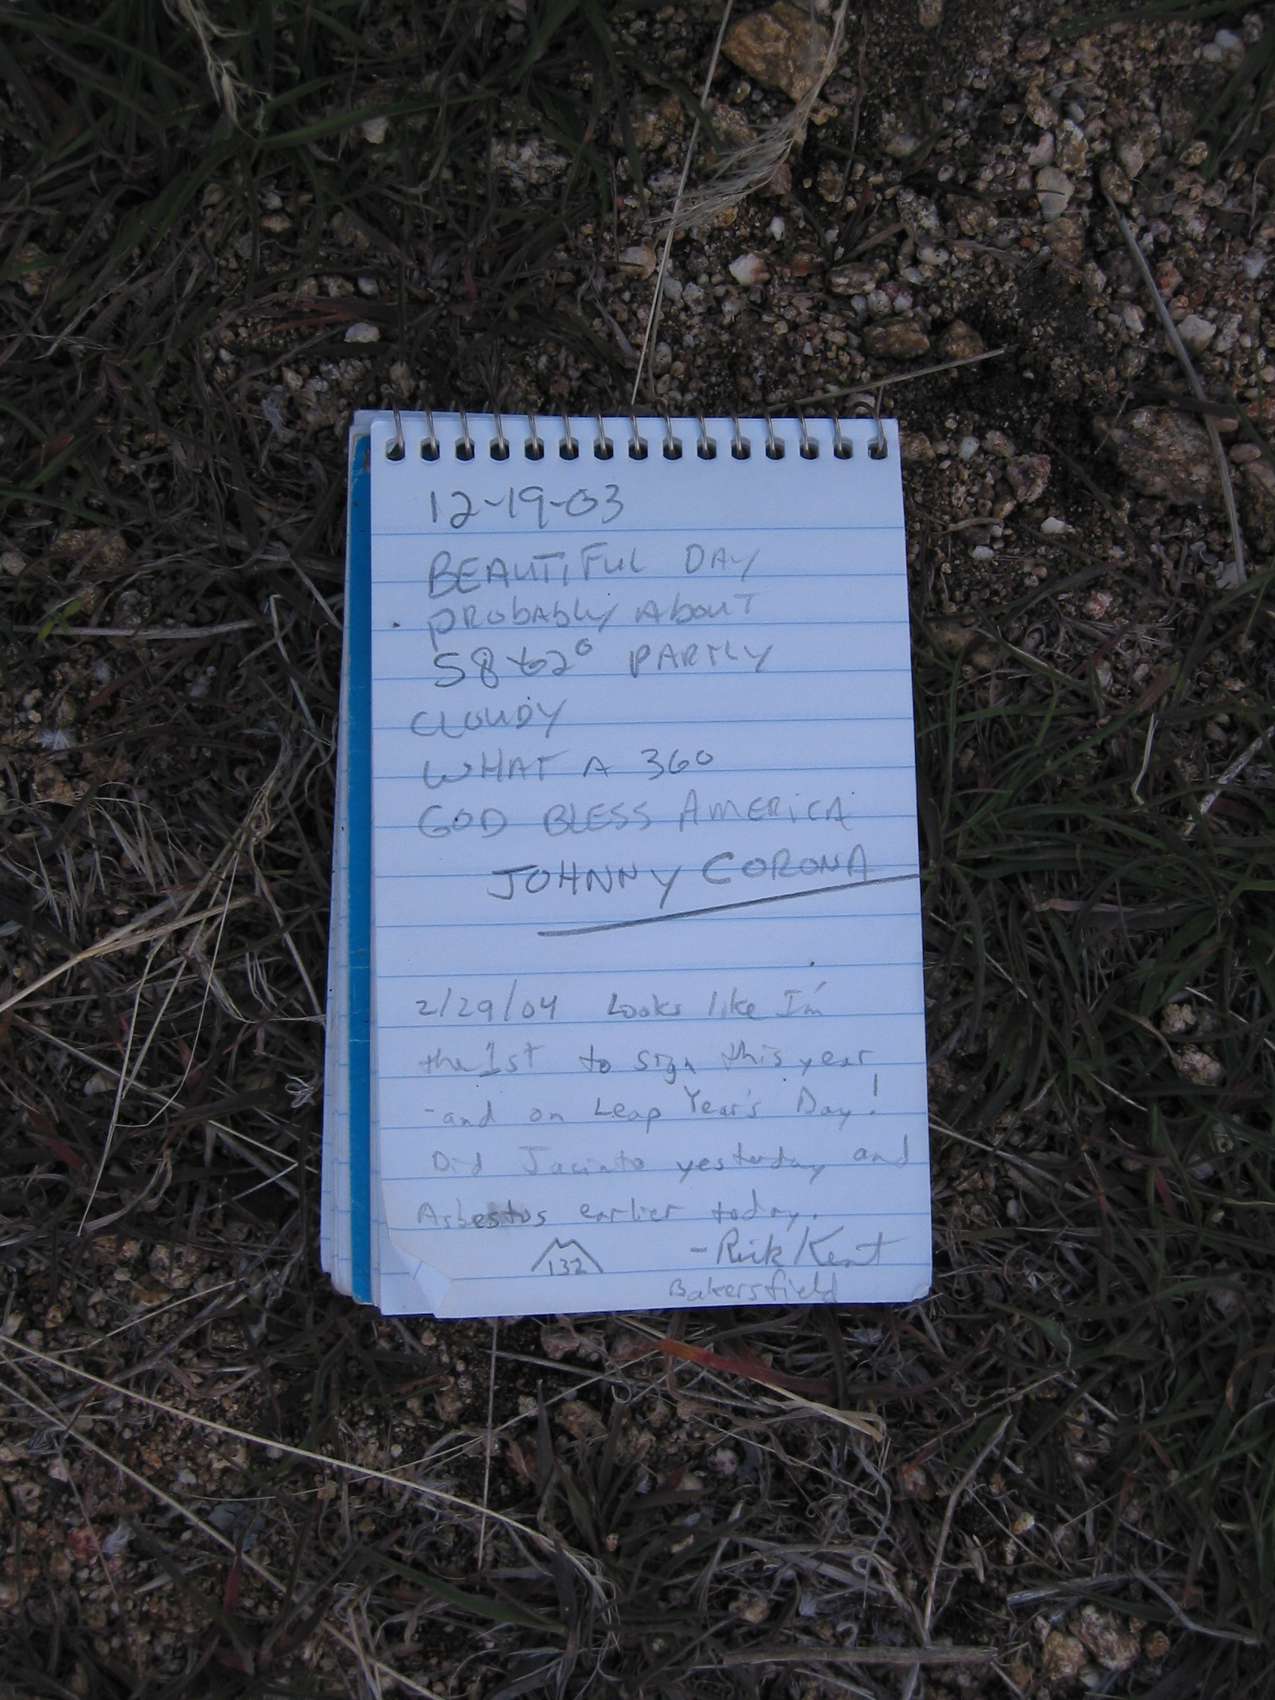 12-19-03
BEAUTIFUL DAY
PROBABLY ABOUT
58-62° PARTLY
CLOUDY
WHAT A 360
GOD BLESS AMERICA
JOHNNY CORONA
2/29/04 Looks like I'm
the 1st to sign this year
-and on Leap Year's Day!
Did Jacinto yesterday and
Asbestos earlier today.
132 -Rick Kent
Bakersfield